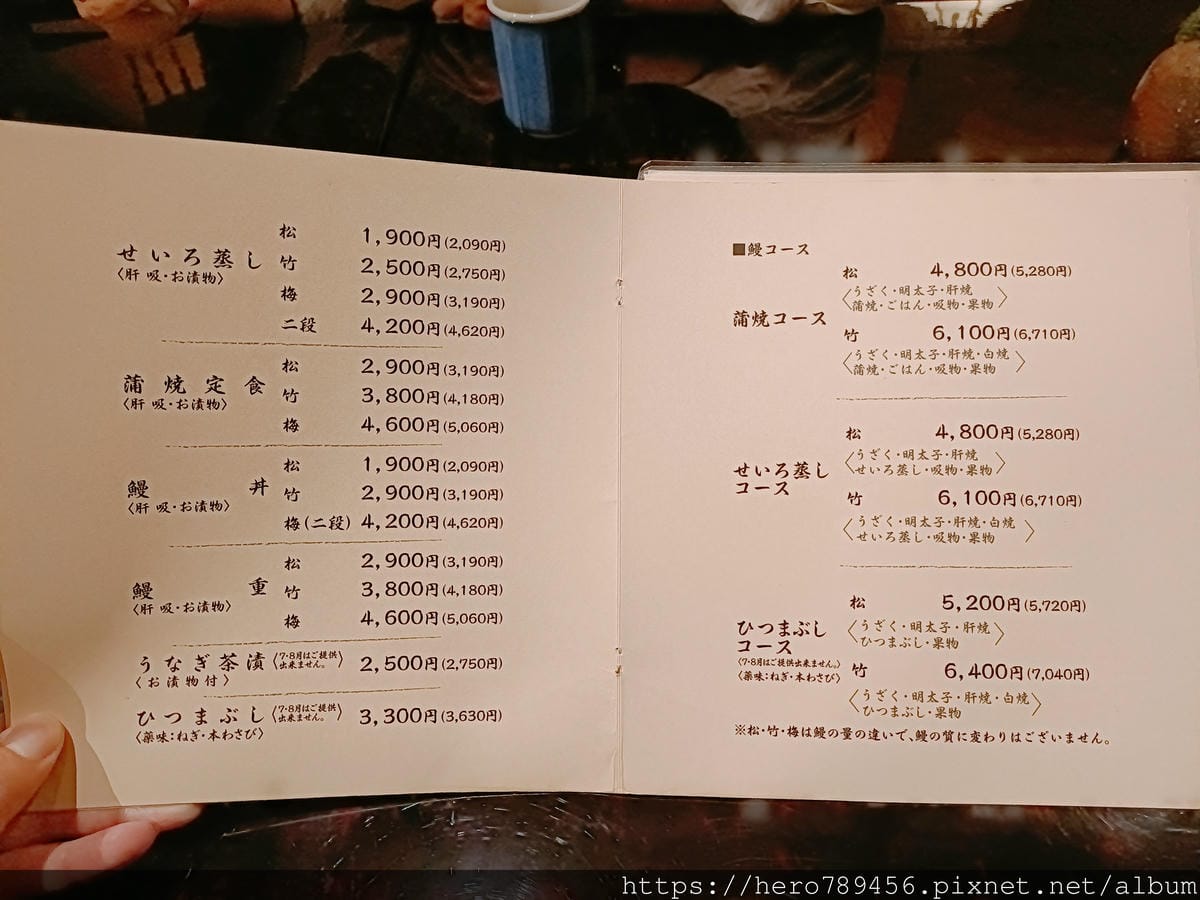 せいろ蒸し
〈肝吸・お漬物〉
松 1,900円(2,090円)
竹 2,500円(2,750円)
梅 2,900円(3,190円)
二段 4,200円(4,620円)
蒲焼定食
〈肝吸・お漬物〉
松 2,900円(3,190円)
竹 3,800円(4,180円)
梅 4,600円(5,060円)
鰻丼
〈肝吸・お漬物〉
松 1,900円(2,090円)
竹 2,900円(3,190円)
梅(二段) 4,200円(4,620円)
鰻重
〈肝吸・お漬物〉
松 2,900円(3,190円)
竹 3,800円(4,180円)
梅 4,600円(5,060円)
うなぎ茶漬 〈7・8月はご提供出来ません。〉 2,500円(2,750円)
〈お漬物付〉
ひつまぶし 〈7・8月はご提供出来ません。〉 3,300円(3,630円)
〈薬味:ねぎ・本わさび〉
■鰻コース
蒲焼コース
松 4,800円(5,280円)
〈うざく・明太子・肝焼
蒲焼・ごはん・吸物・果物〉
竹 6,100円(6,710円)
〈うざく・明太子・肝焼・白焼
蒲焼・ごはん・吸物・果物〉
せいろ蒸し
コース
松 4,800円(5,280円)
〈うざく・明太子・肝焼
せいろ蒸し・吸物・果物〉
竹 6,100円(6,710円)
〈うざく・明太子・肝焼・白焼
せいろ蒸し・吸物・果物〉
ひつまぶし
コース
〈7・8月はご提供出来ません。〉
〈薬味:ねぎ・本わさび〉
松 5,200円(5,720円)
〈うざく・明太子・肝焼
ひつまぶし・果物〉
竹 6,400円(7,040円)
〈うざく・明太子・肝焼・白焼
ひつまぶし・果物〉
※松・竹・梅は鰻の量の違いで、鰻の質に変わりはございません。
https://hero789456.pixnet.net/album